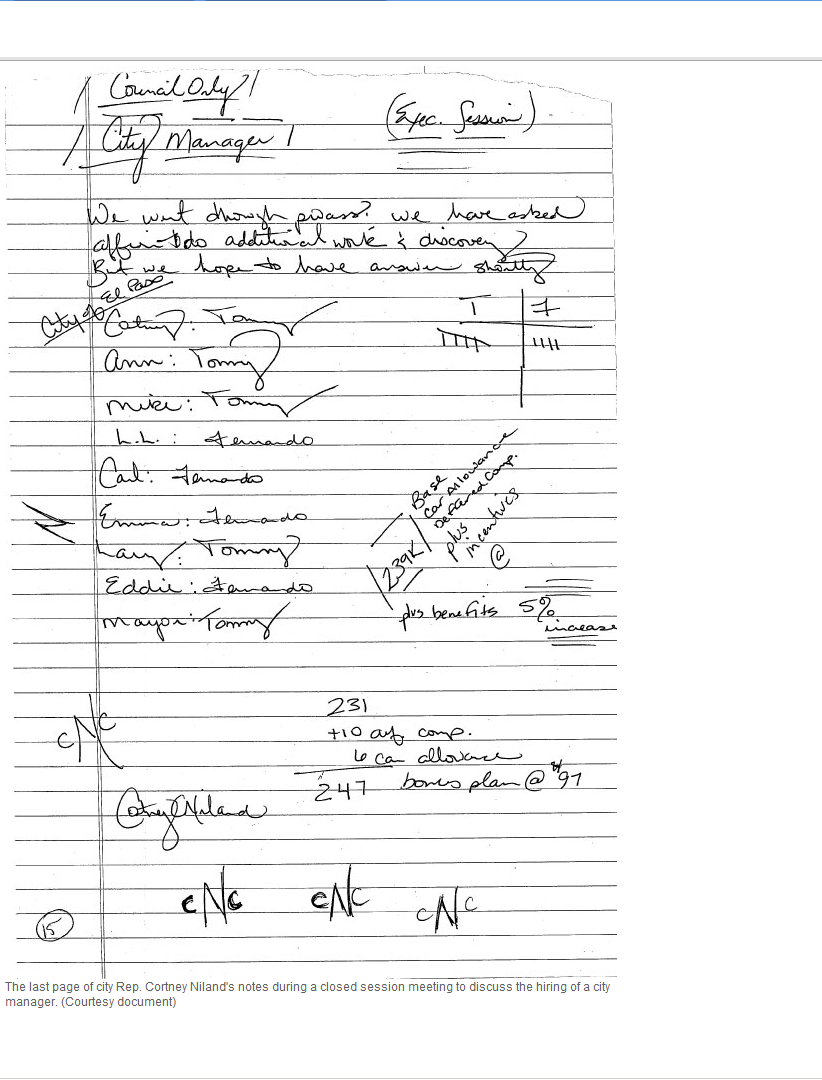 Council Only
(Exec. Session)
City Manager
We went through process? we have asked
affion to do additional work & discovery
But we hope to have answer shortly
City of El Paso
Cortney: Tommy
T F
Ann: Tommy
Mike: Tommy
L.L.: Fernando
Carl: Fernando
Emma: Fernando
Larry: Tommy
Eddie: Fernando
Mayor: Tommy
239K
Base
Car Allowance
Deferred Comp.
plus
incentives
@
plus benefits
5%
increase
cNc
231
+10 comp.
6 car allowance
247 bonus plan @ 97
Cortney Niland
cNc cNc cNc
15
The last page of city Rep. Cortney Niland's notes during a closed session meeting to discuss the hiring of a city
manager. (Courtesy document)